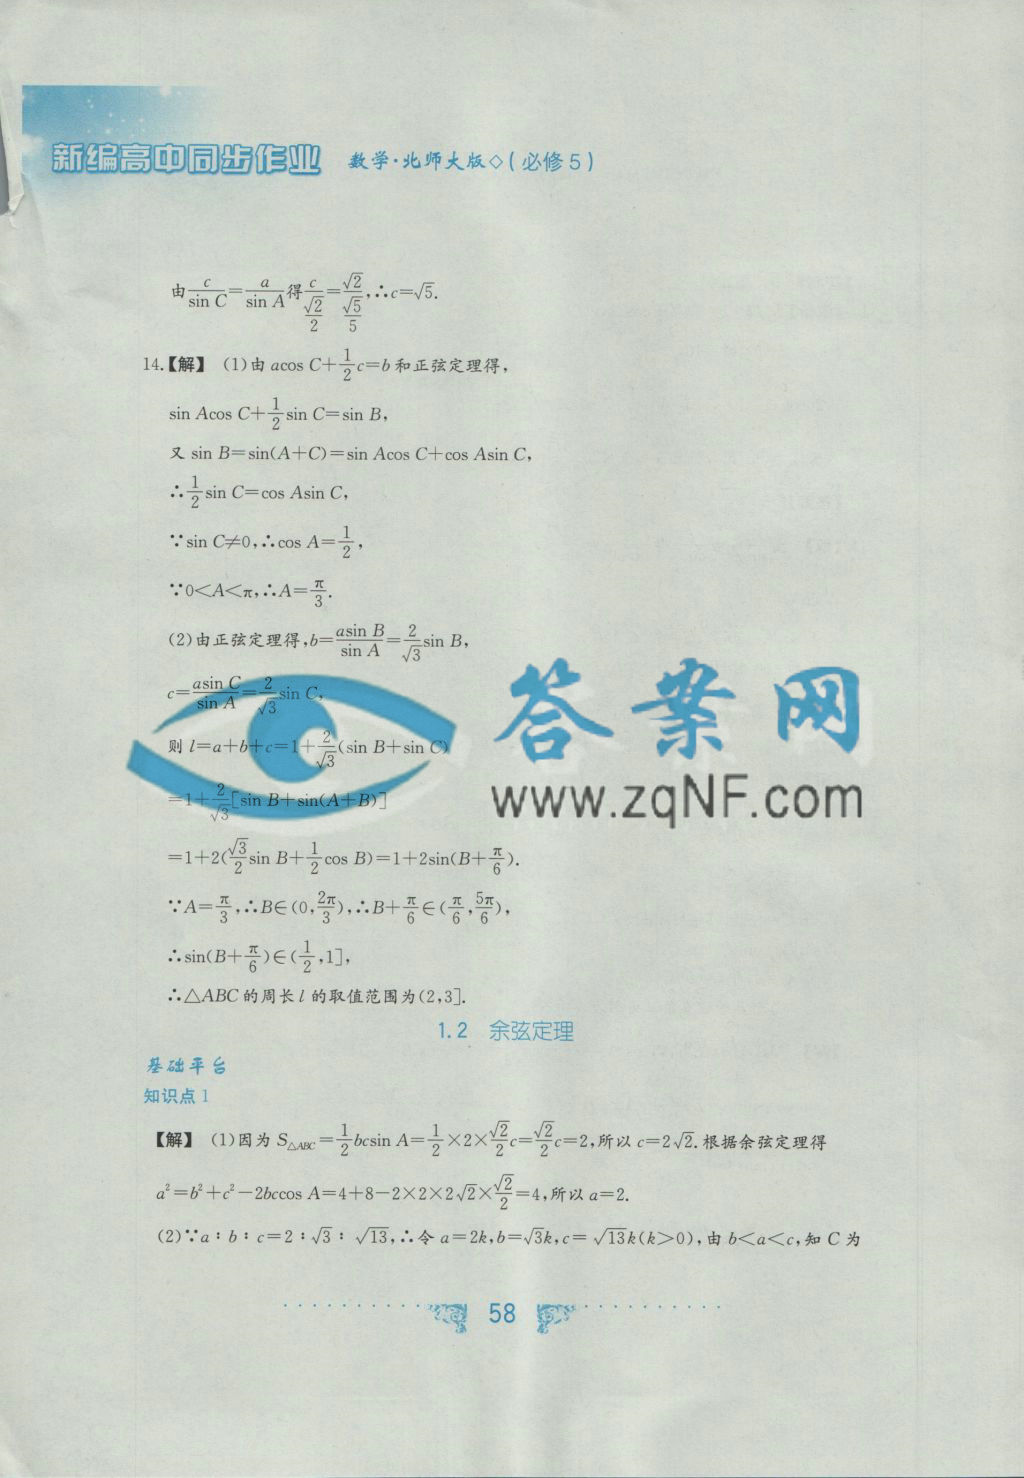 新编高中同步作业 数学·北师大版◇(必修5)
由c/sin C=a/sin A得c/(√2/2)=√2/(√5/5),∴c=√5.
14.【解】 (1)由 acos C+1/2c=b 和正弦定理得,
sin Acos C+1/2sin C=sin B,
又 sin B=sin(A+C)=sin Acos C+cos Asin C,
∴1/2sin C=cos Asin C,
∵sin C≠0,∴cos A=1/2,
∵0<A<π,∴A=π/3.
(2)由正弦定理得,b=asin B/sin A=2/√3sin B,
c=asin C/sin A=2/√3sin C,
则 l=a+b+c=1+2/√3(sin B+sin C)
=1+2/√3[sin B+sin(A+B)]
=1+2(√3/2sin B+1/2cos B)=1+2sin(B+π/6).
∵A=π/3,∴B∈(0,2π/3),∴B+π/6∈(π/6,5π/6),
∴sin(B+π/6)∈(1/2,1],
∴△ABC 的周长 l 的取值范围为(2,3].
答案网
www.zqNF.com
1.2 余弦定理
基础平台
知识点1
【解】 (1)因为 S△ABC=1/2bcsin A=1/2×2×√2/2c=√2/2c=2,所以 c=2√2.根据余弦定理得
a²=b²+c²-2bccos A=4+8-2×2×2√2×√2/2=4,所以 a=2.
(2)∵a∶b∶c=2∶√3∶√13,∴令 a=2k,b=√3k,c=√13k(k>0),由 b<a<c,知 C 为
58